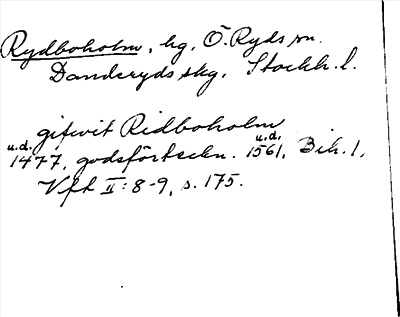 Rydboholm, hg, Ö. Ryds sn.
Danderyds skg, Stockh. l.
gifwit Ridboholm
u.d. 1477, godsförteckn. u.d. 1561, Bih. 1,
Vft II: 8-9, s. 175.